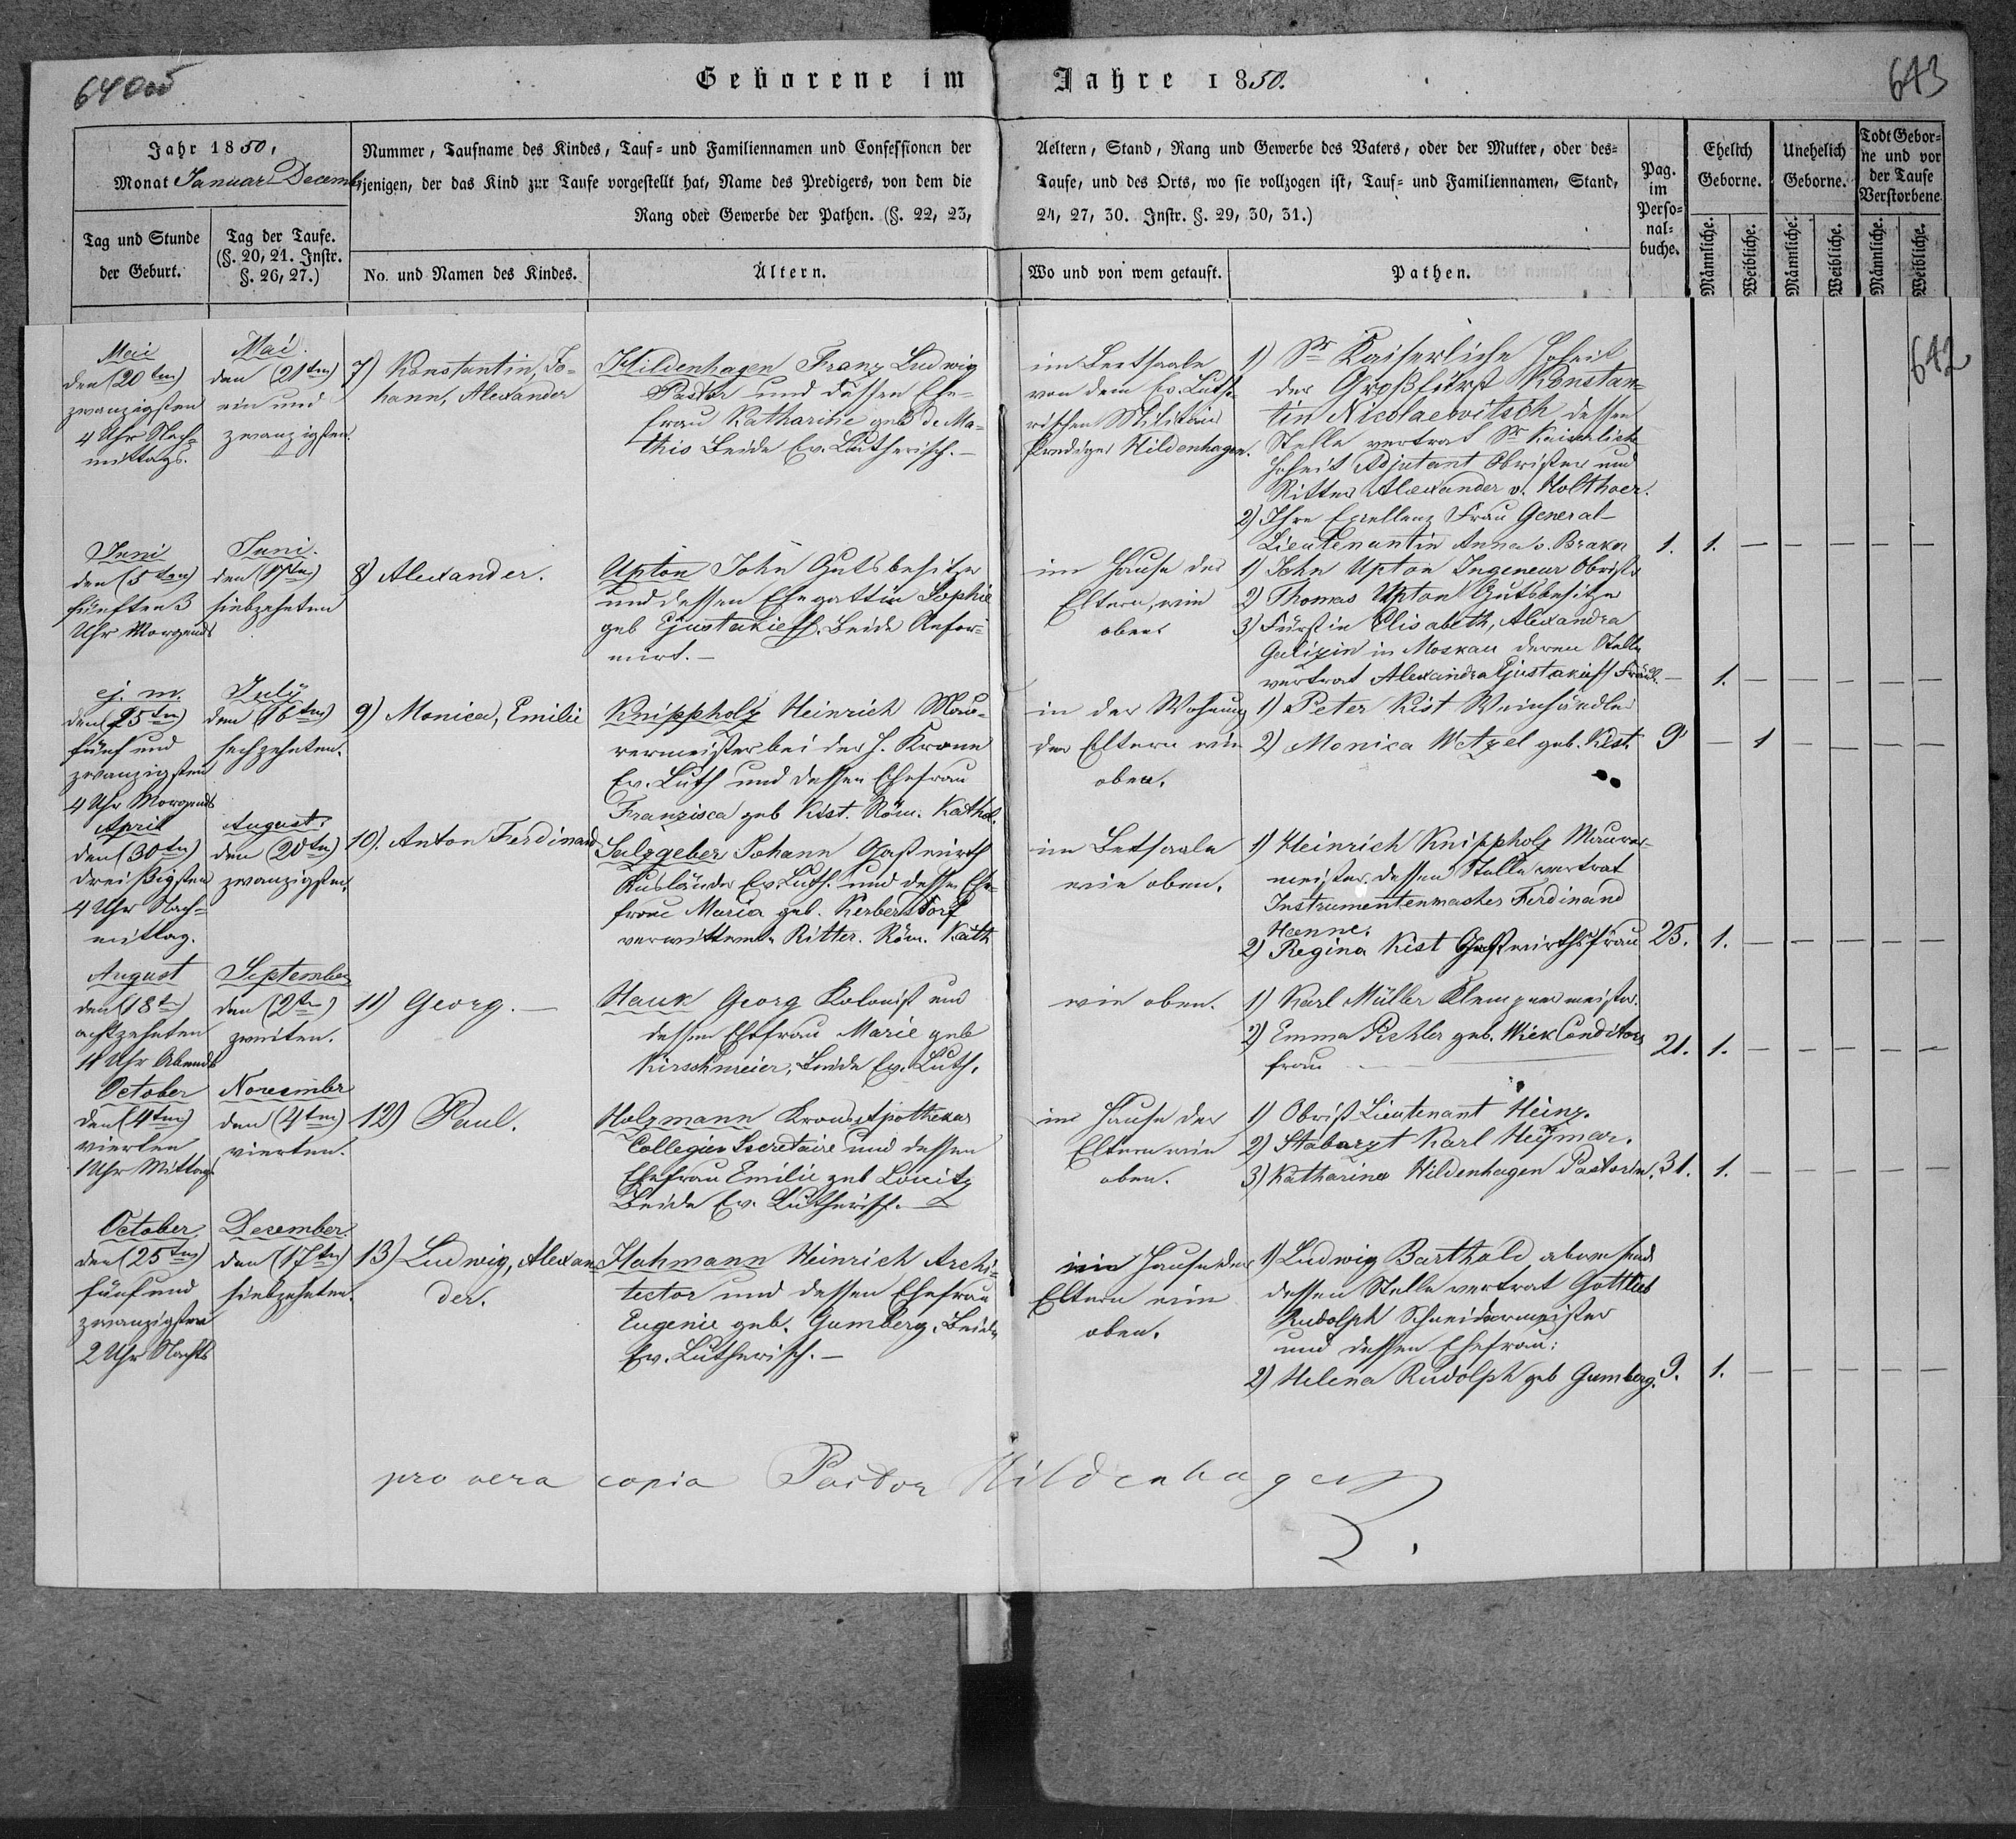 640 об
643
Geborene im Jahre 1850.
Jahr 1850,
Monat Januar-Decembr
Nummer, Taufname des Kindes, Tauf- und Familiennamen und Confessionen der Aeltern, Stand, Rang und Gewerbe des Vaters, oder der Mutter, oder des-
jenigen, der das Kind zur Taufe vorgestellt hat, Name des Predigers, von dem die Taufe, und des Orts, wo sie vollzogen ist, Tauf- und Familiennamen, Stand,
Rang oder Gewerbe der Pathen. (§. 22, 23, 24, 27, 30. Instr. §. 29, 30, 31.)
Tag und Stunde
der Geburt.
Tag der Taufe.
(§. 20, 21. Instr.
§. 26, 27.)
No. und Namen des Kindes.
Ältern.
Wo und von wem getauft.
Pathen.
Pag.
im
Perso-
nal-
buche.
Ehelich
Geborne.
Unehelich
Geborne.
Todt Gebor-
ne und vor
der Taufe
Verstorbene.
Männliche.
Weibliche.
Männliche.
Weibliche.
Männliche.
Weibliche.
642
Mai
den (20ten)
zwanzigsten
4 Uhr Nach-
mittags.
Mai.
den (21ten)
ein und
zwanzigsten.
7) Konstantin, Jo-
hann, Alexander
Hildenhagen Franz Ludwig
Pastor und dessen Ehe-
frau Katharine geb de Ma-
this Beide Ev. Lutherisch. —
im Betsaale
von dem Ev. Luthe-
rischen Militair
Prediger Hildenhagen.
1) Sr Kaiserliche Hoheit
der Großfürst Konstan-
tin Nicolaewitsch dessen
Stelle vertrat Sr Kaiserliche
Hoheit Adjutant Obrister und
Ritter Alexander v. Holthoer.
2) Ihre Excellenz Frau General-
Lieutenantin Anna v. Braker
1. 1. — — — — —
Juni
den (5ten)
fünften 3
Uhr Morgends
Juni.
den (17ten)
siebzehnten
8) Alexander.
Upton John Gutsbesitzer
und dessen Ehegattin Sophie
geb Ejustakieff. Beide Refor-
mirt. —
im Hause der
Eltern, wie
oben.
1) John Upton Ingeneur Obrister
2) Thomas Upton Gutsbesitzer
3) Fürstin Elisabeth, Alexandra
Galizin in Moskau deren Stelle
vertrat Alexandra Ejustakieff Fräul.
— 1. — — — — —
ej. m.
den (25ten)
fünf und
zwanzigsten
4 Uhr Morgends
July
den (16ten)
sechzehnten.
9) Monica, Emilie
Knippholz Heinrich Mau-
rermeister bei der H. Krone
Ev. Luth und dessen Ehefrau
Franzisca geb Kist. Röm. Kathol.
in der Wohnung
der Eltern wie
oben.
1) Peter Kist Weinhändler
2) Monica Wetzel geb. Kist.
9 — 1 — — — —
April
den (30ten)
dreißigsten
4 Uhr Nach-
mittag.
August.
den (20ten)
zwanzigsten.
10). Anton Ferdinand
Salzgeber Johann Gastwirth
Ausländer Ev. Luth. und dessen Ehe-
frau Maria geb. Kerbersdorf
verwittwete Ritter. Röm. Kath
im Betsaale
wie oben.
1) Heinrich Knippholz Maurer-
meister. dessen Stelle vertrat
Instrumentenmacher Ferdinand
Hanne.
2) Regina Kist Gastwirthsfrau
25. 1. — — — — —
August
den (18ten)
achtzehnten
11 Uhr Abends
September
den (2ten)
zweiten.
11) Georg. —
Hauk Georg Kolonist und
dessen Ehefrau Marie geb
Kirschmeier, Beide Ev. Luth.
wie oben.
1) Karl Müller Klempnermeister.
2) Emma Pichler geb. Wiek Conditors
frau
21. 1. — — — — —
October
den (4ten)
vierten
1 Uhr Mittags
November
den (4ten)
vierten.
12) Paul.
Holzmann Krons Apotheker
Collegien Secretaire und dessen
Ehefrau Emilie geb Lowitz
Beide Ev. Lutherisch. —
im Hause der
Eltern wie
oben.
1) Obrist Lieutenant Heinz.
2) Stabarzt Karl Heymar.
3) Katharine Hildenhagen Pastorin.
31. 1. — — — — —
October
den (25ten)
fünf und
zwanzigsten
2 Uhr Nachts
Desember.
den (17ten)
siebzehnten.
13) Ludwig, Alexan-
der.
Hahmann Heinrich Archi-
tector und dessen Ehefrau
Eugenie geb. Gumberg, Beide
Ev. Lutherisch. —
im Hause der
Eltern wie
oben.
1) Ludwig Barthold abwesend
dessen Stelle vertrat Gottlieb
Rudolph Schneidermeister
und dessen Ehefrau:
2) Helena Rudolph geb Gumberg.
9. 1. — — — — —
pro vera copia Pastor Hildenhagen